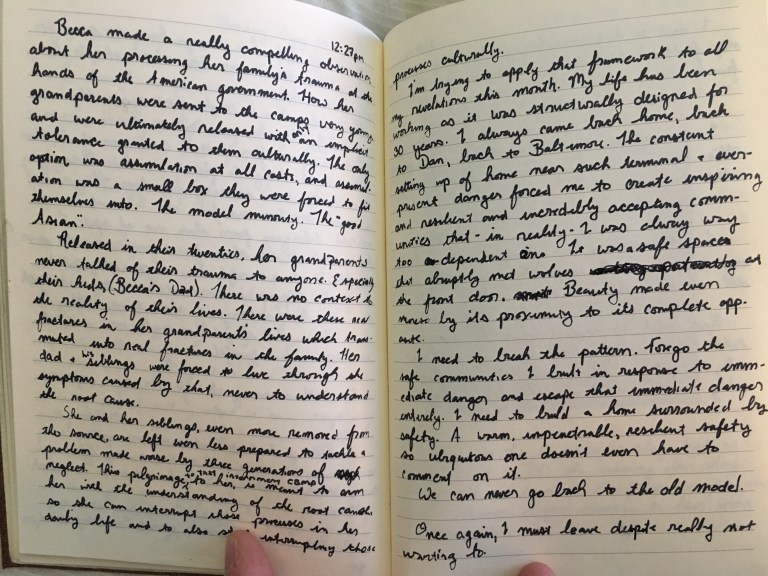 12:27pm
Becca made a really compelling observation
about her processing her family's trauma at the
hands of the American government. How her
grandparents were sent to the camps very young
and were ultimately released with only an implicit
tolerance granted to them culturally. The only
option was assimilation at all costs, and assimil-
ation was a small box they were forced to fit
themselves into. The model minority. The "good
Asian".
Released in their twenties, her grandparents
never talked of their trauma to anyone. Especially
their kids, (Becca's Dad). There was no context to
the reality of their lives. There were these real
fractures in her grandparents lives which trans-
muted into real fractures in the family. Her
dad + his siblings were forced to live through the
symptoms caused by that, never to understand
the root cause.
She and her siblings, even more removed from
the source, are left even less prepared to tackle a
problem made worse by three generations of
neglect. This pilgrimage, to that internment camp, to her, is meant to arm
her with the understanding of the root causes
so she can interrupt those processes in her
daily life and to also interrupting those
processes culturally.
I'm trying to apply that framework to all
my revelations this month. My life has been
working as it was structurally designed for
30 years. I always came back home, back
to Dan, back to Baltimore. The constant
setting up of home near such terminal + ever-
present danger forced me to create inspiring
and resilient and incredibly accepting comm-
unities that - in reality - I was always way
too dependent on. It was a safe space
that abruptly met wolves at
the front door. Beauty made even
more by its proximity to its complete opp-
osite.
I need to break the pattern. Forego the
safe communities I built in response to imm-
ediate danger and escape that immediate danger
entirely. I need to build a home surrounded by
safety. A warm, impenetrable, resilient safety
so ubiquitous one doesn't even have to
comment on it.
We can never go back to the old model.
Once again, I must leave despite really not
wanting to.